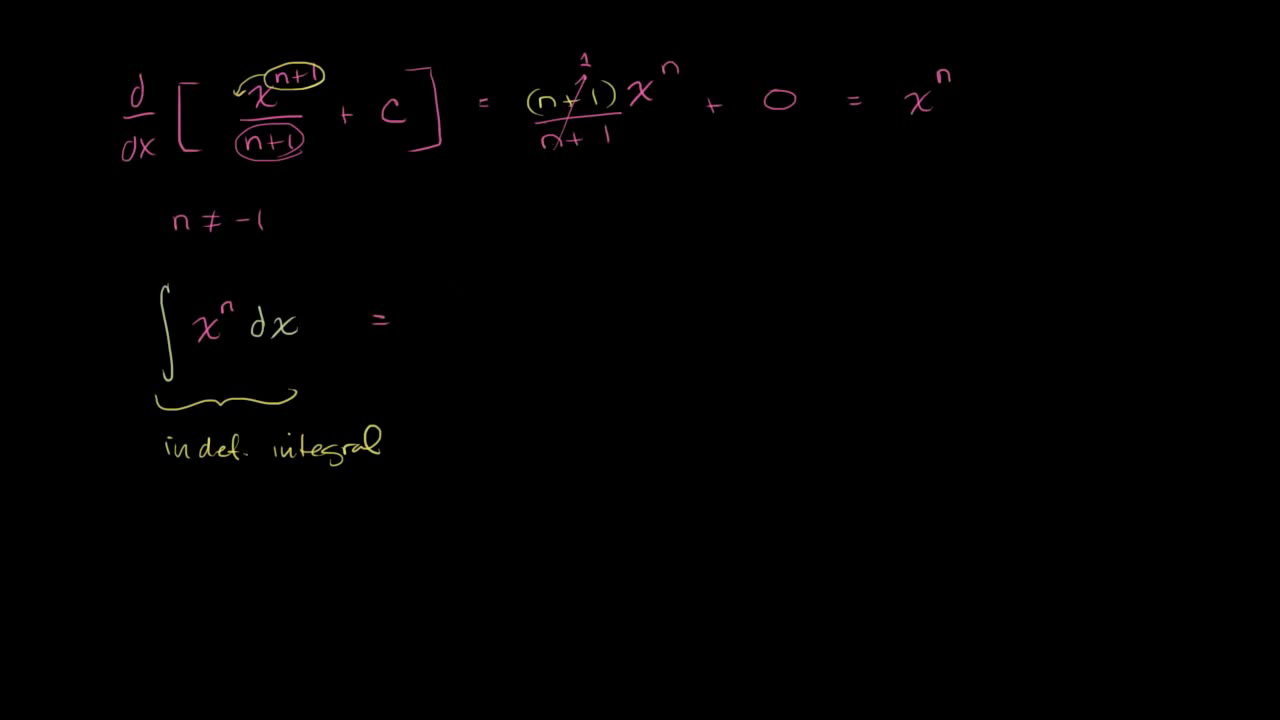 d/dx [ x^(n+1)/(n+1) + c ] = (n+1)x^n/(n+1) 1 + 0 = x^n
n ≠ -1
∫ x^n dx =
indef. integral